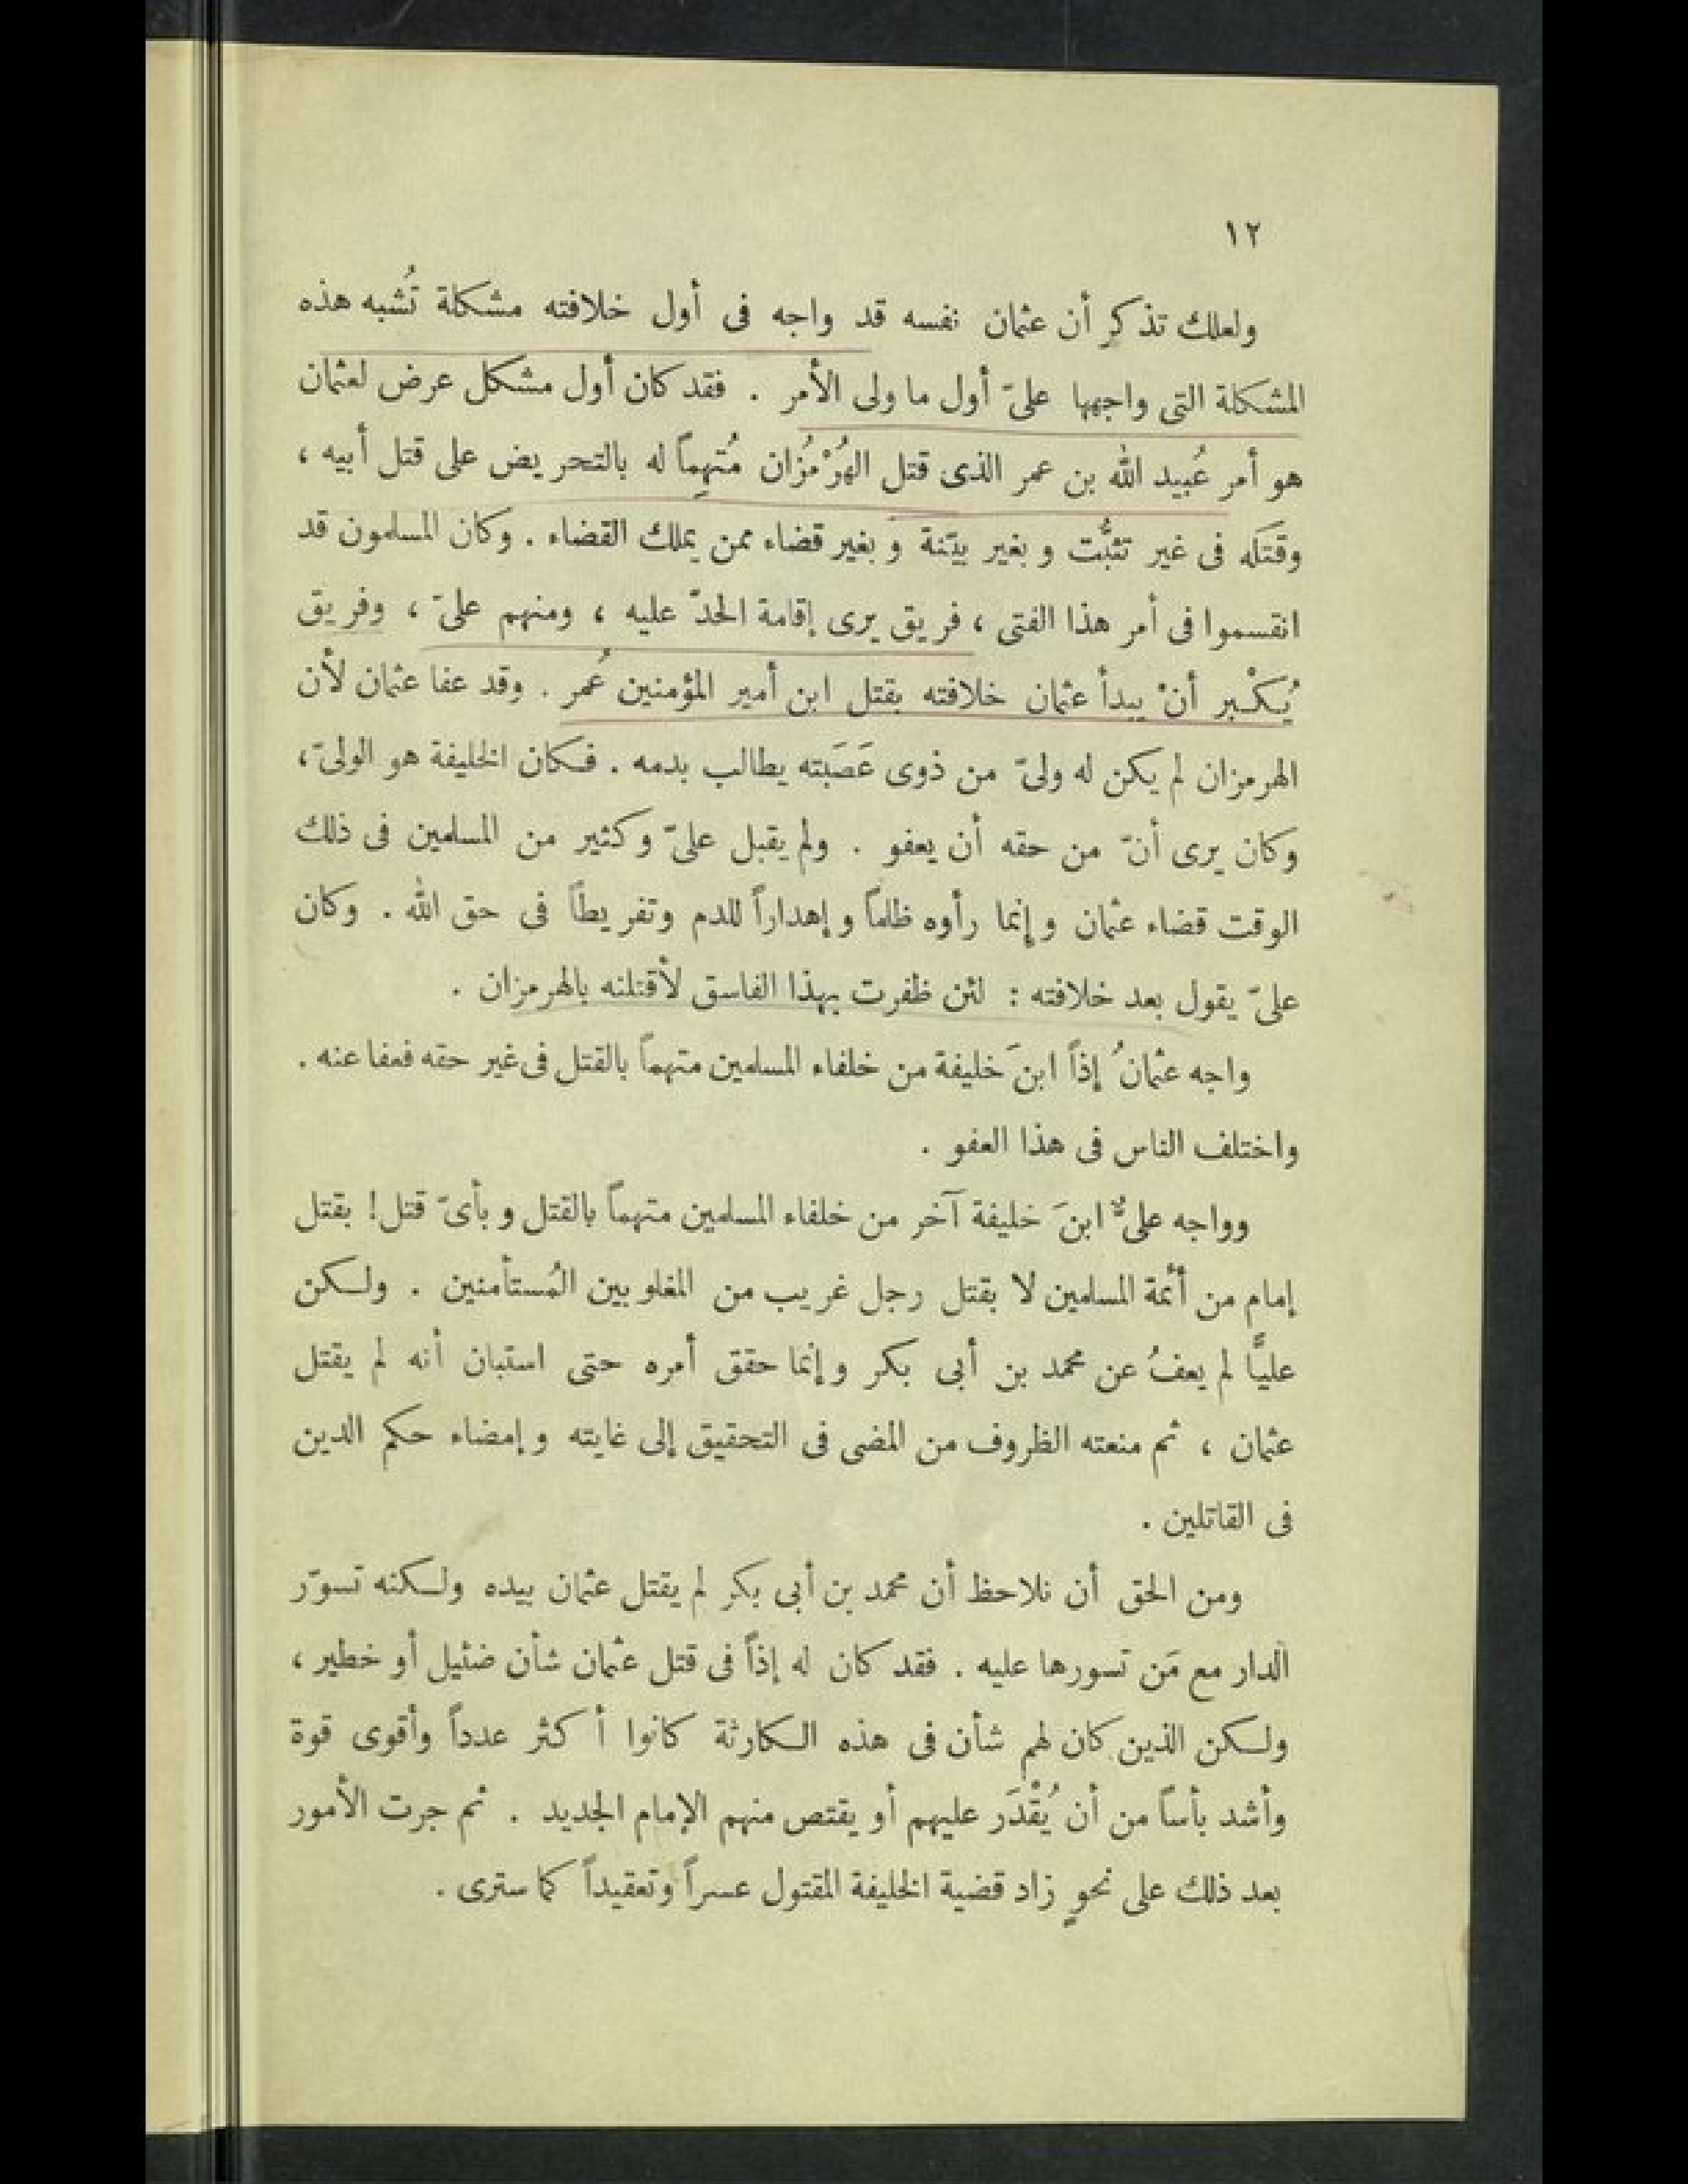 ١٢
ولعلك تذكر أن عثمان نفسه قد واجه فى أول خلافته مشكلة تُشبه هذه
المشكلة التى واجهها علىّ أول ما ولى الأمر . فقد كان أول مشكل عرض لعثمان
هو أمر عُبيد الله بن عمر الذى قتل الهُرْمُزان مُتهِماً له بالتحريض على قتل أبيه ،
وقتَله فى غير تثبُّت وبغير بيّنة وبغير قضاء ممن يملك القضاء . وكان المسلمون قد
انقسموا فى أمر هذا الفتى ، فريق يرى إقامة الحدّ عليه ، ومنهم علىّ ، وفريق
يُكْبر أنْ يبدأ عثمان خلافته بقتل ابن أمير المؤمنين عُمر . وقد عفا عثمان لأن
الهرمزان لم يكن له ولىّ من ذوى عَصَبته يطالب بدمه . فكان الخليفة هو الولىّ ،
وكان يرى أنّ من حقه أن يعفو . ولم يقبل علىّ وكثير من المسلمين فى ذلك
الوقت قضاء عثمان وإنما رأوه ظلماً وإهداراً للدم وتفريطاً فى حق الله . وكان
علىّ يقول بعد خلافته : لئن ظفرت بهذا الفاسق لأقتلنه بالهرمزان .
واجه عثمانُ إذاً ابنَ خليفة من خلفاء المسلمين متهماً بالقتل فى غير حقه فعفا عنه .
واختلف الناس فى هذا العفو .
وواجه علىٌّ ابنَ خليفة آخر من خلفاء المسلمين متهماً بالقتل وبأىّ قتل! بقتل
إمام من أئمة المسلمين لا بقتل رجل غريب من المغلوبين المُستأمنين . ولكن
عليًّا لم يعفُ عن محمد بن أبى بكر وإنما حقق أمره حتى استبان أنه لم يقتل
عثمان ، ثم منعته الظروف من المضى فى التحقيق إلى غايته وإمضاء حكم الدين
فى القاتلين .
ومن الحق أن نلاحظ أن محمد بن أبى بكر لم يقتل عثمان بيده ولكنه تسوّر
الدار مع مَن تسورها عليه . فقد كان له إذاً فى قتل عثمان شأن ضئيل أو خطير ،
ولكن الذين كان لهم شأن فى هذه الكارثة كانوا أكثر عدداً وأقوى قوة
وأشد بأساً من أن يُقْدَر عليهم أو يقتص منهم الإمام الجديد . ثم جرت الأمور
بعد ذلك على نحوٍ زاد قضية الخليفة المقتول عسراً وتعقيداً كما سترى .